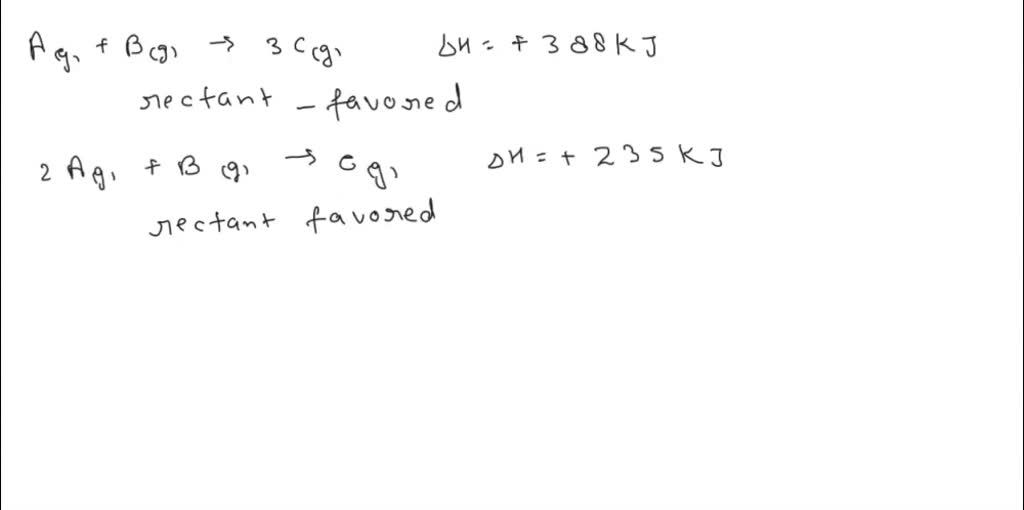 A(g) + B(g) → 3 C(g) ΔH = + 388 KJ
rectant - favored
2 A(g) + B (g) → C(g) ΔH = + 235 KJ
rectant favored